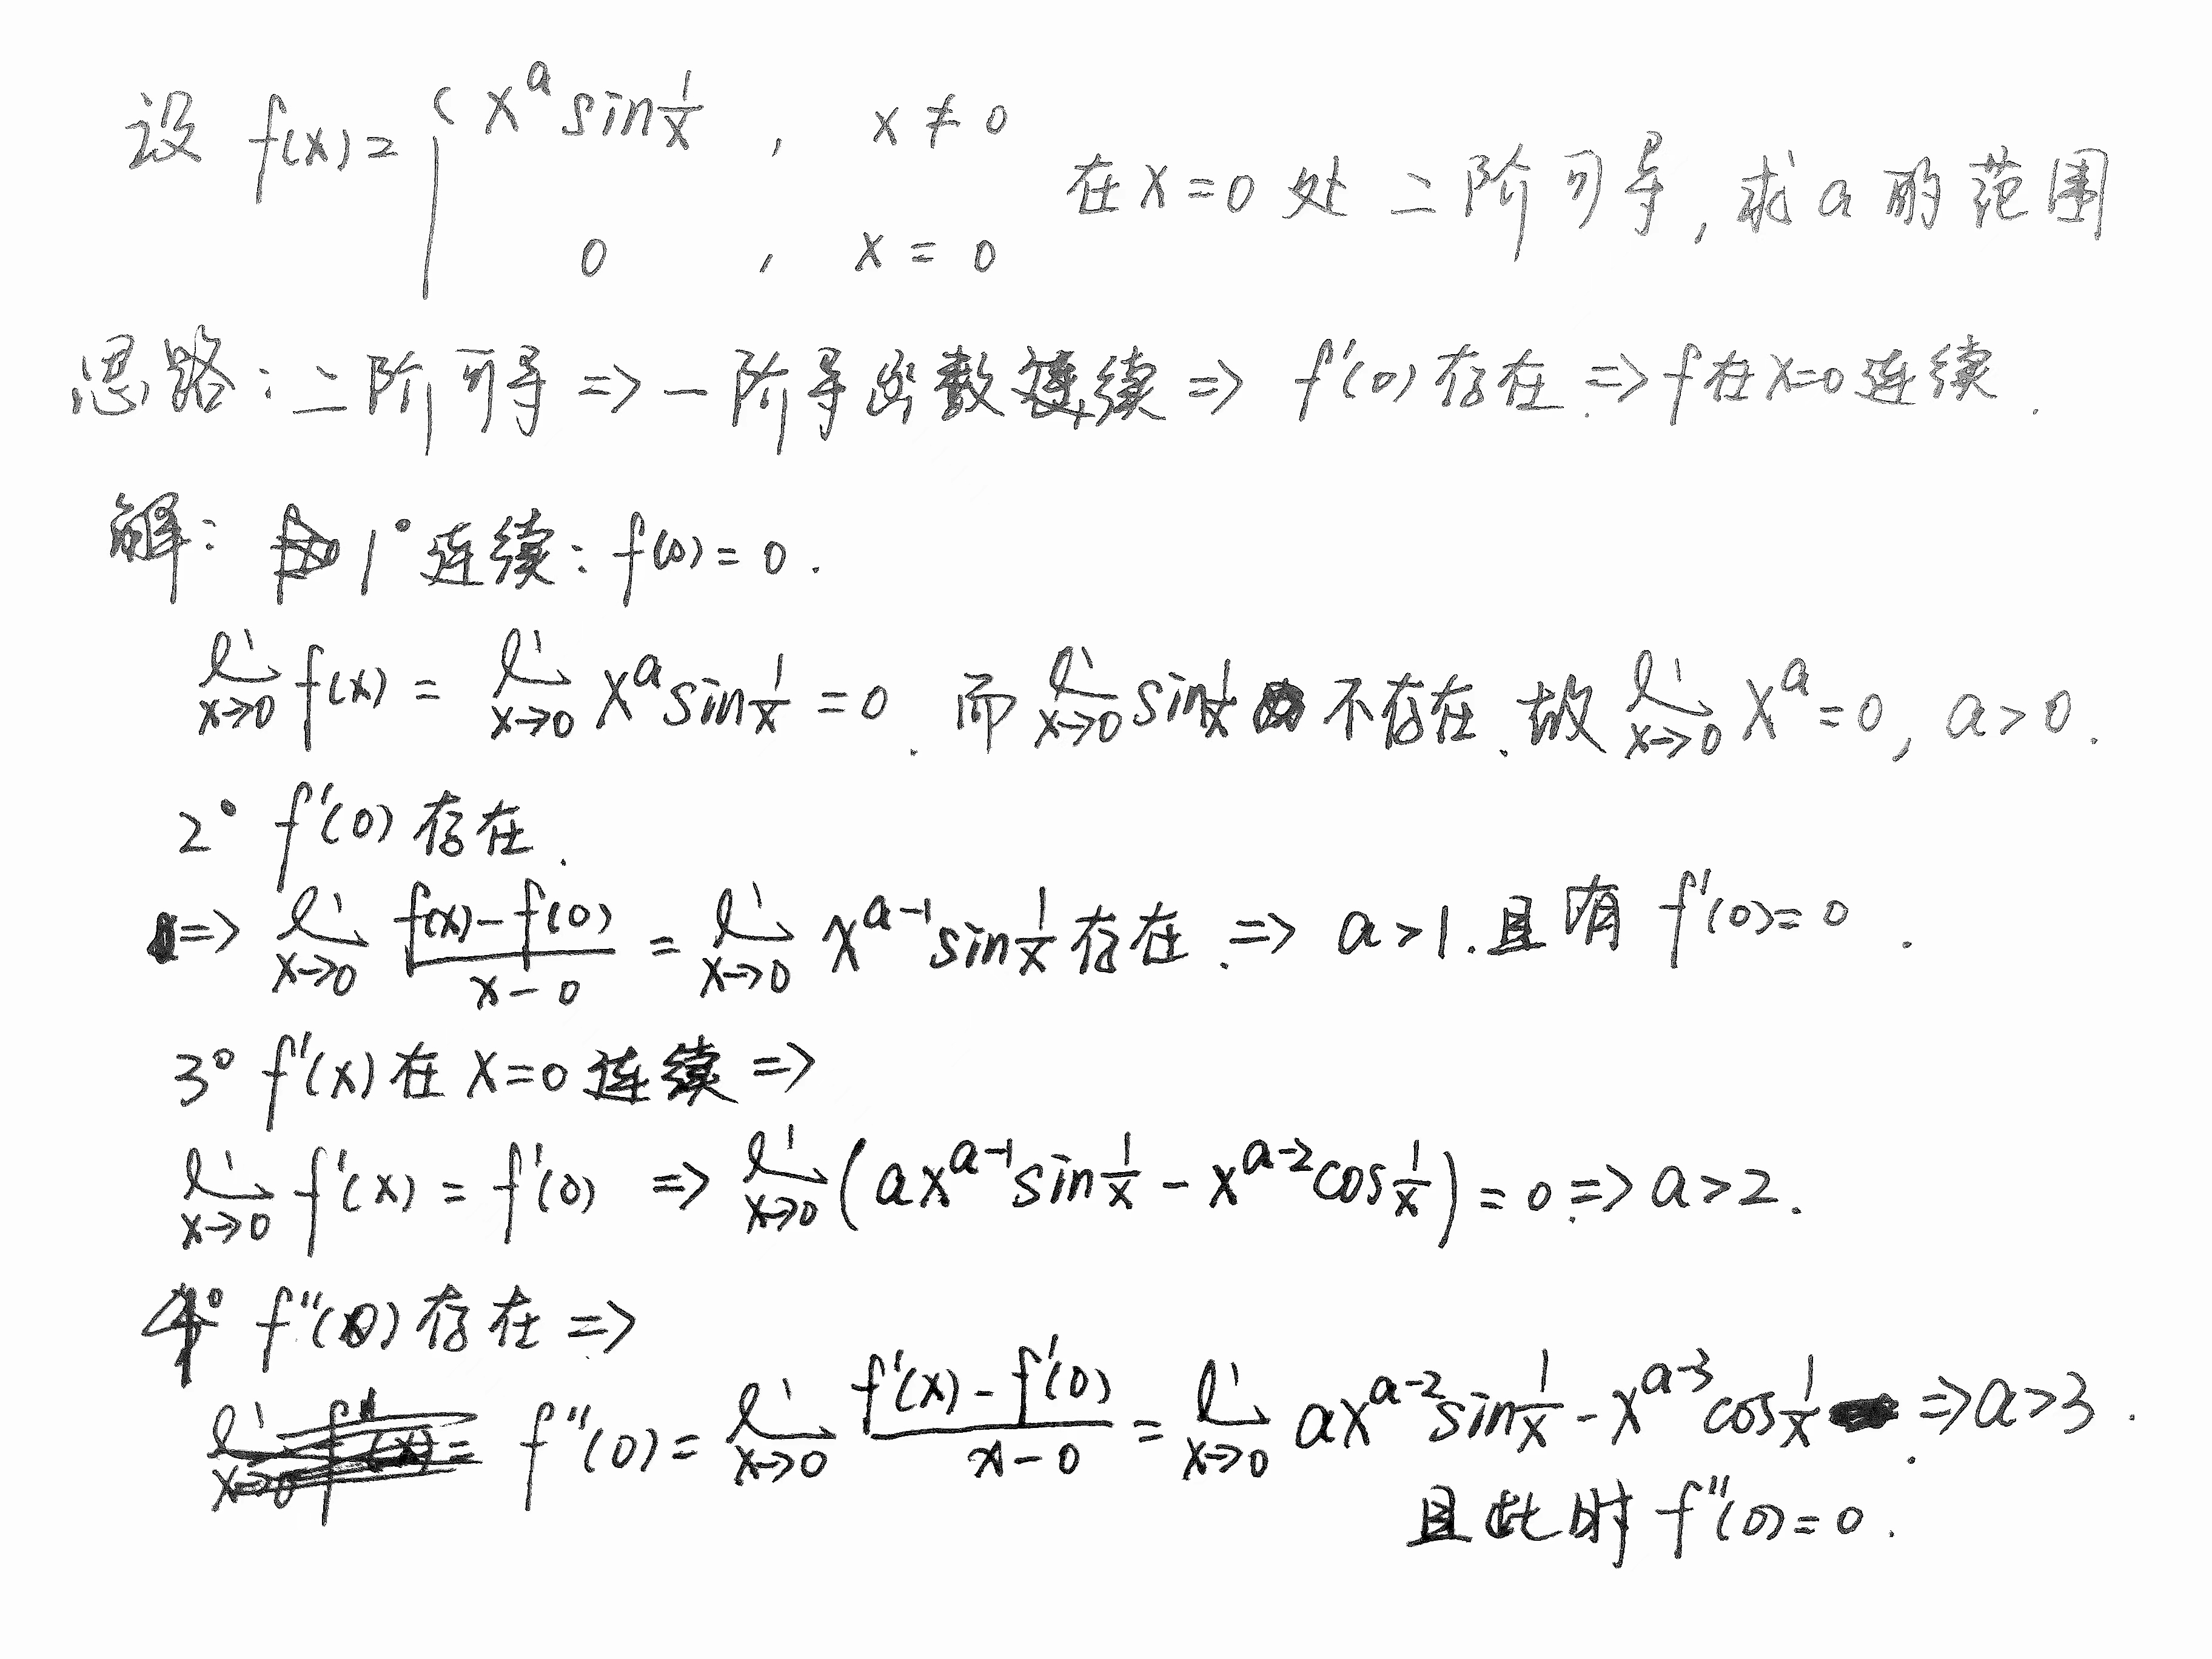 设 f(x)= { x^a sin 1/x , x ≠ 0
0 , x = 0 在x=0处二阶可导,求a的范围
思路:二阶可导 => 一阶导函数连续 => f'(0)存在. => f在x=0连续.
解: 1° 连续: f(0)=0.
lim x→0 f(x) = lim x→0 x^a sin 1/x = 0. 而 lim x→0 sin 1/x 不存在. 故 lim x→0 x^a = 0, a>0.
2° f'(0)存在.
=> lim x→0 (f(x)-f(0))/(x-0) = lim x→0 x^(a-1) sin 1/x 存在. => a>1. 且有 f'(0)=0.
3° f'(x)在x=0连续 =>
lim x→0 f'(x) = f'(0) => lim x→0 (ax^(a-1) sin 1/x - x^(a-2) cos 1/x) = 0. => a>2.
4° f''(0)存在 =>
f''(0) = lim x→0 (f'(x)-f'(0))/(x-0) = lim x→0 ax^(a-2) sin 1/x - x^(a-3) cos 1/x. => a>3.
且此时 f''(0)=0.